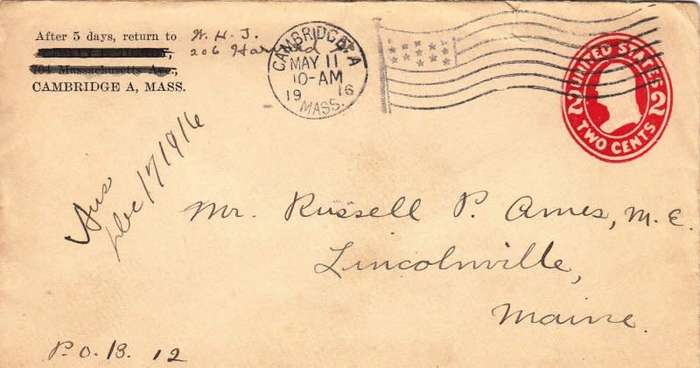 After 5 days, return to W. H. J.
206 Harvard St
764 Massachusetts Ave.,
CAMBRIDGE A, MASS.
CAMBRIDGE A
MAY 11
10-AM
19 16
MASS.
UNITED STATES
2 2
TWO CENTS
Ans
Dec 17 1916
Mr. Russell P. Ames, M. E.
Lincolnville,
Maine.
P. O. B. 12